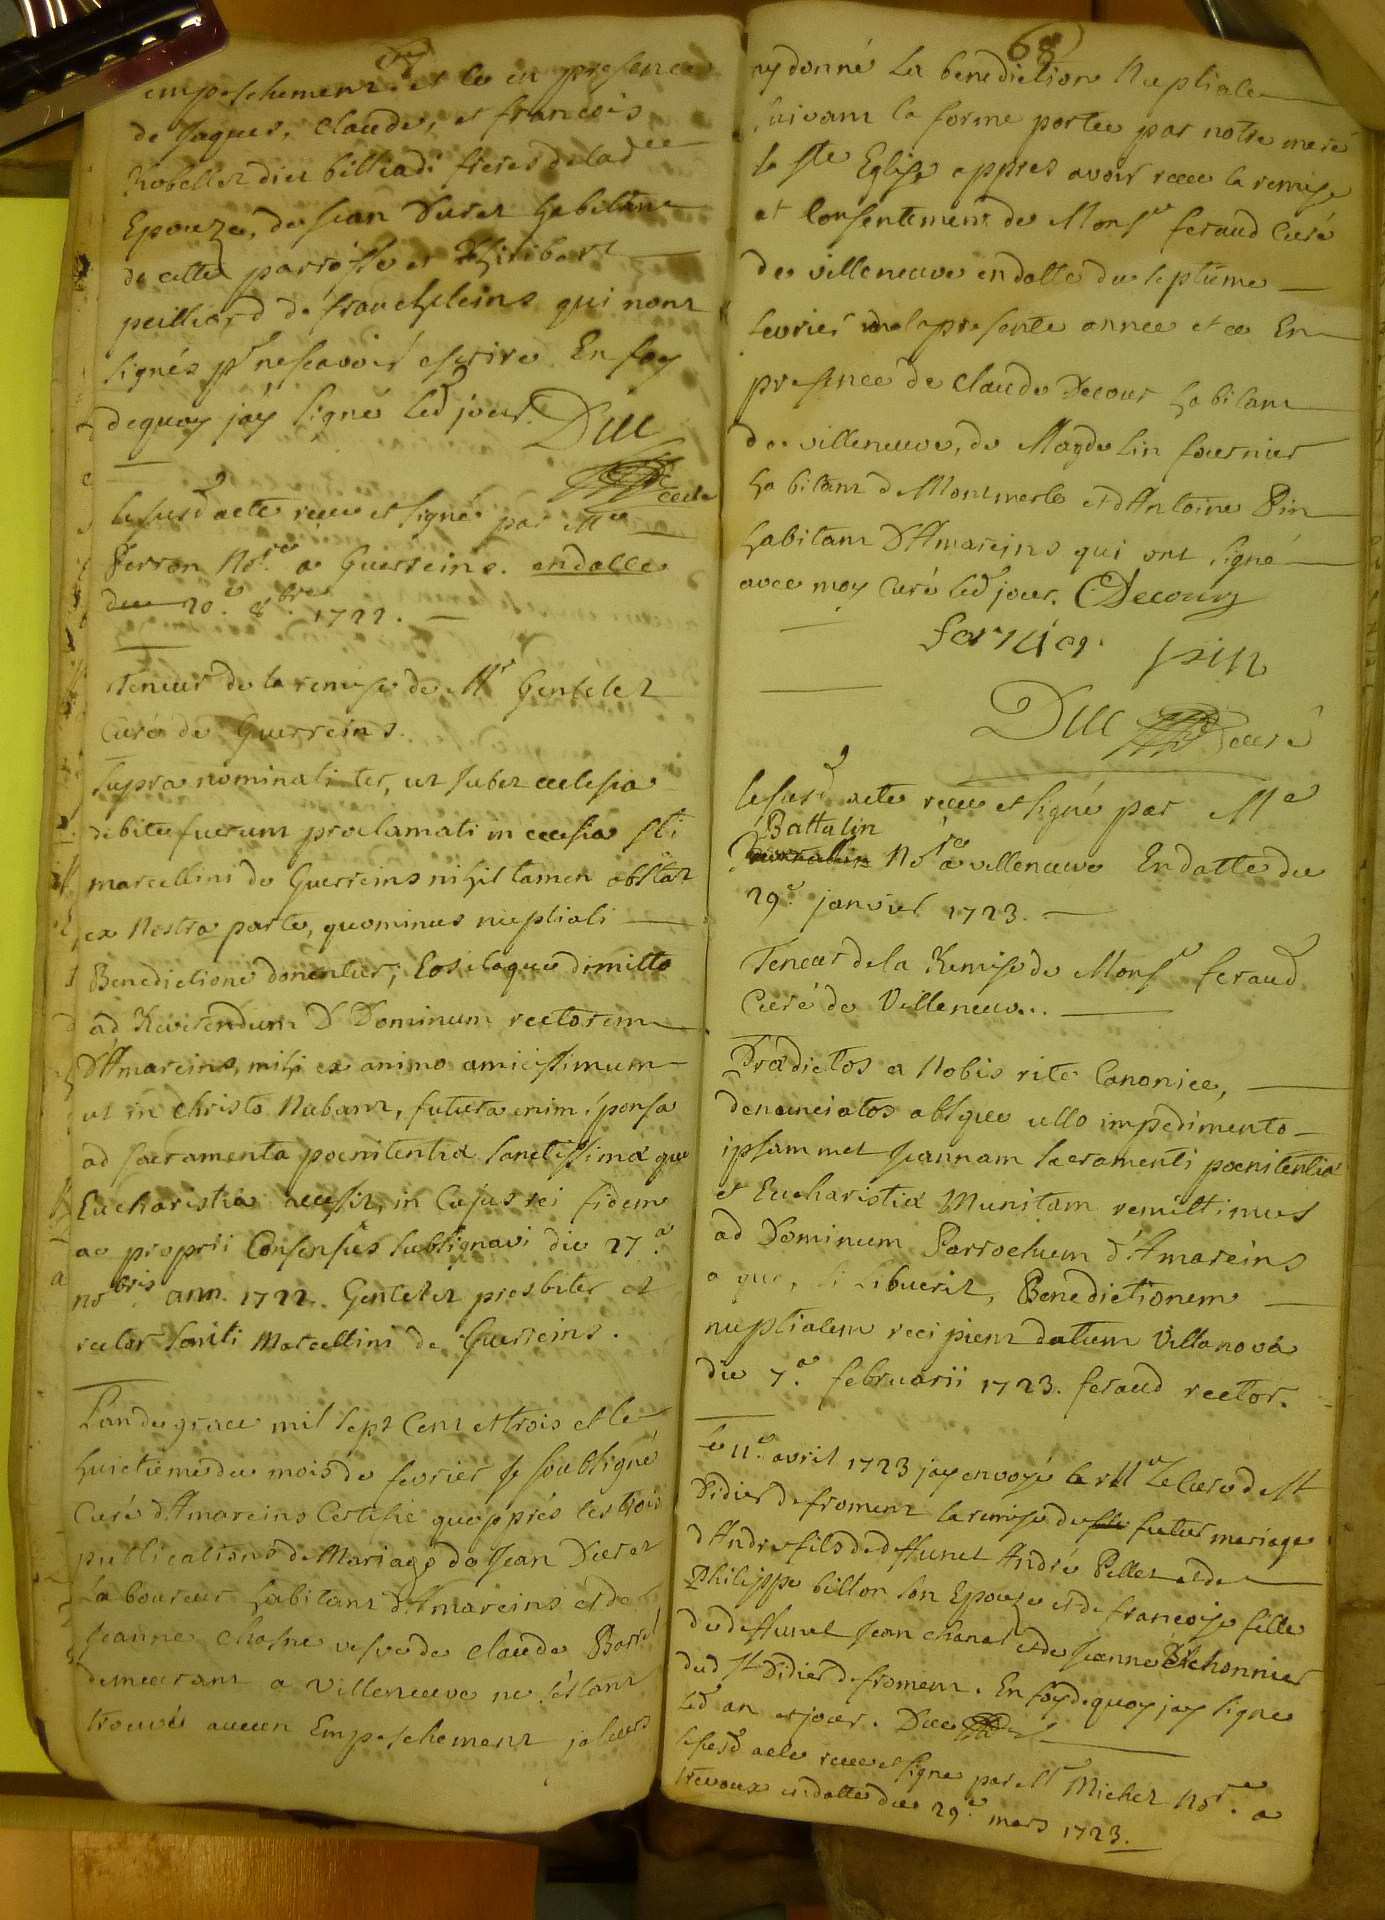 empeschement. et ce en presence
de Jaques, Claude, et francois
Robellet dit billiadi freres de lad^ee
Epouze, de Jean Duret habitant
de cette parroisse et Philibert
peilliard de francheleins qui n'ont
signés p^r ne scavoir escrire. En foy
dequoy jay signé led jour. Duc
curé
le susd acte receu et signé par M^e
Perron No^re a Guerreins. en datte
du 20^e 8^bre 1722.
Teneur de la remise de M^r Gentelet
Curé de Guerreins.
Supra nominati ter, ut Jubet ecclesia
debite fuerunt proclamati in ecclesia Sti
marcellini de Guerreins nihil tamen obstat
ex Nostra parte, quominus nuptiali
Benedictione donentur; Eos itaque dimitto
ad Reverendum D Dominum rectorem
D'Amareins, mihi ex animo amicissimum
ut in Christo Nubant, futura enim sponsa
ad sacramenta poenitentiæ sanctissimæque
Eucharistiæ accessit, in Cujus rei fidem
ac proprii Consensus subsignavi die 27^a
no^bris ann. 1722. Gentelet presbiter et
rector sancti Marcellini de Guerreins.
L'an de grace mil sept Cent et trois et le
huictieme du mois de fevrier Je soubsigné
Curé d'Amareins Certifie qu'apprés les trois
publications de Mariage de Jean Duret
Laboureur habitant d'Amareins et de
Jeanne Chasne vefve de Claude Barret
demeurant a Villeneuve ne s'estant
trouvé aucun Empeschement je leurs
68
ay donné La benediction Nuptiale
suivant la forme portée par notre mere
la Ste Eglise appres avoir receu la remise
et Consentement de Mons^r feraud Curé
de villeneuve en datte du septieme
fevrier de la presente annee et ce En
presence de Claude Decour habitant
de villeneuve, de Magdelin fournier
habitant de Montmerle et d'Antoine Pin
habitant D'Amareins qui ont signé
avec moy Curé led jour. CDecour
fornier pin
Duc curé
le susd acte receu et signé par M^e
Battalin
No^re a villeneuve En datte du
29^e janvier 1723.
Teneur de la Remise de Mons^r feraud
Curé de Villeneuve.
Prædictos a Nobis rite Canonice,
denunciatos absque ullo impedimento
ipsammet Jeannam sacramenti poenitentiæ
et Eucharistiæ Munitam remittimus
ad Dominum Parrochum d'Amareins
a quo, si libuerit, Benedictionem
nuptialem recipient datum Villanova
die 7^a februarii 1723. feraud rector.
Le 11^e avril 1723 jay envoyé a M^r Le Curé de St
Didier de froment la remise du futur mariage
d'André fils de deffunct André Pellet et de
Philippe billon son Epouze et de francoise fille
de deffunct Jean Chanel et de Jeanne Bichonnier
dud St Didier de froment. En foy de quoy jay signé
led an et jour. Duc
le susd acte receu et signé par M^r Michet No^re a
trevoux en datte du 29^e mars 1723.